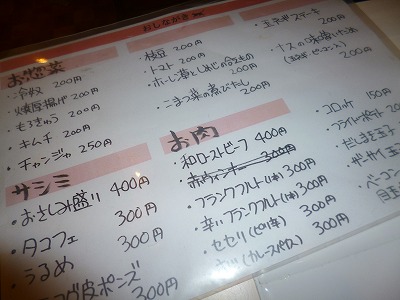 おしながき
お惣菜
・冷奴 200円
・焼厚揚げ 200円
・もろきゅう 200円
・キムチ 200円
・チャンジャ 250円
・枝豆 200円
・トマト 200円
200円
・こまつ菜の煮びたし
200円
ステーキ
200円
200円
サシミ
・おさしみ盛り 400円
・タコフェ 300円
・うるめ 300円
皮ポンズ
300円
お肉
・和ローストビーフ 400円
・赤ウィンナー 300円
・フランクフルト(1本) 300円
・辛いフランクフルト(1本) 300円
・セセリ(ピリ辛) 300円
(カレースパイス) 300円
・コロッケ 150円
・フライドポテト 200円
・だしまき玉子
・ザーサイ
・ベーコン